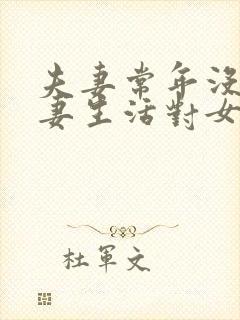 夫妻常年沒
妻生活對女
杜軍文